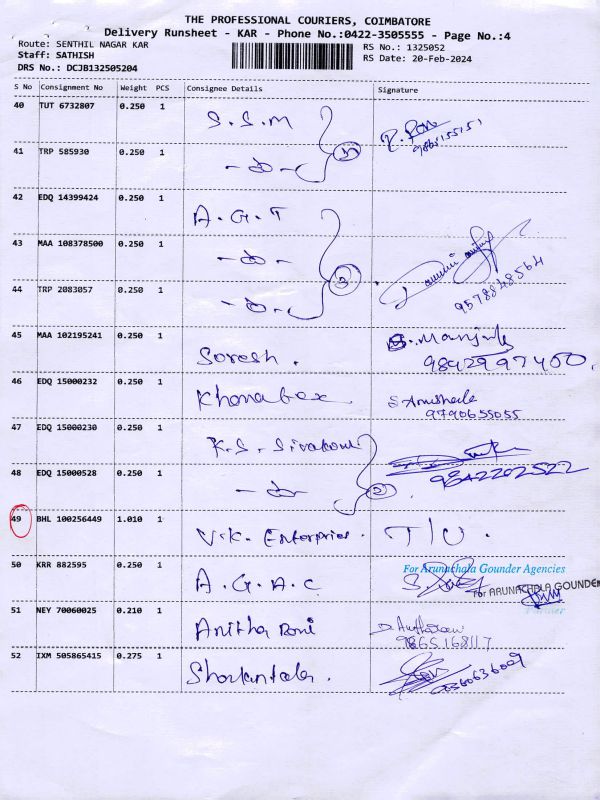 THE PROFESSIONAL COURIERS, COIMBATORE
Delivery Runsheet - KAR - Phone No.:0422-3505555 - Page No.:4
Route: SENTHIL NAGAR KAR
RS No.: 1325052
Staff: SATHISH
RS Date: 20-Feb-2024
DRS No.: DCJB132505204
S No Consignment No Weight PCS Consignee Details Signature
40 TUT 6732807 0.250 1 S.S.M
9865155151
41 TRP 585930 0.250 1
42 EDQ 14399424 0.250 1 A.G.T
43 MAA 108378500 0.250 1
3
9578848564
44 TRP 2083057 0.250 1
45 MAA 102195241 0.250 1 Soresh. S. Manjula
9842997400.
46 EDQ 15000232 0.250 1 Khonabex S Anusheela
9790655055
47 EDQ 15000230 0.250 1 K.S. Sivakoni
48 EDQ 15000528 0.250 1 2
9842202522
49 BHL 100256449 1.010 1 V.K. Enterprise. T/U.
50 KRR 882595 0.250 1 A.G.A.C
For Arunachala Gounder Agencies
For ARUNACHALA GOUNDER
51 NEY 70060025 0.210 1 Anitha Roni
9865168117
52 IXM 505865415 0.275 1 Shakuntala.